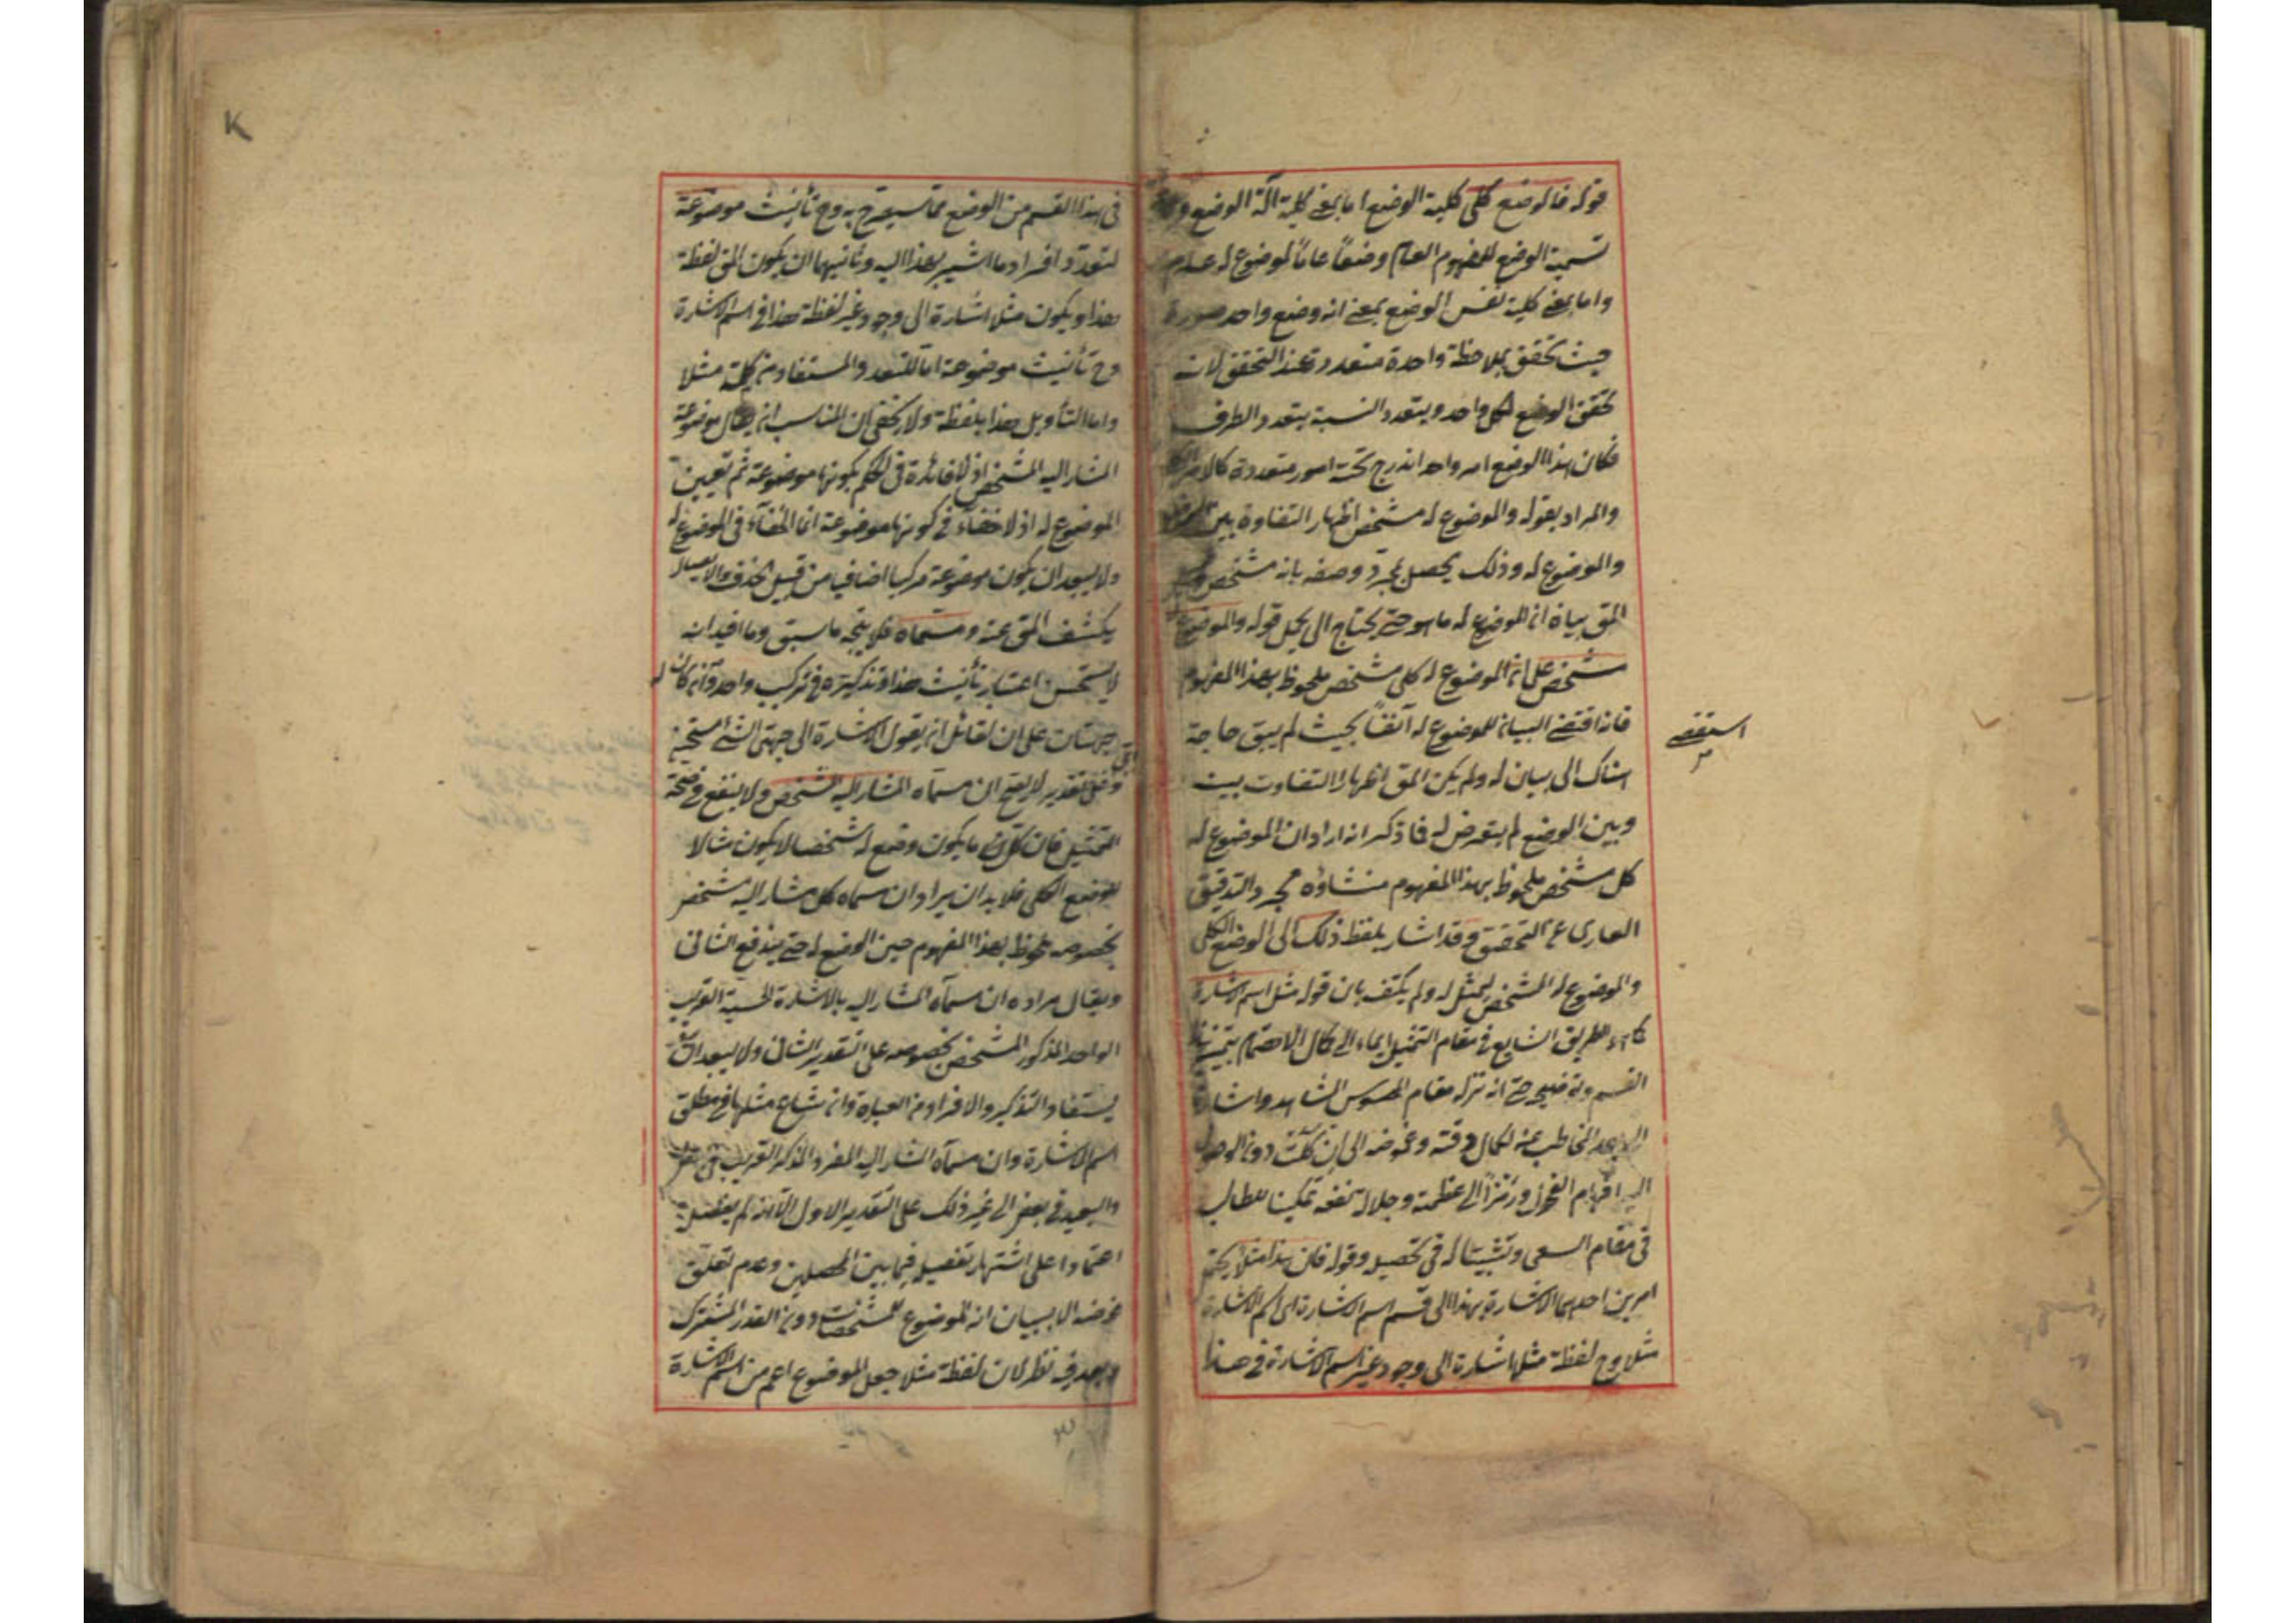 قوله فالوضع كلى كلية الوضع اما بمعنى كلية آلة الوضع
تسمية الوضع للمفهوم العام وضعاً عاماً لموضوع له عام
واما بمعنى كلية نفس الوضع بمعنى انه وضع واحد صورة
حيث تحقق بملاحظة واحدة متعددة عند التحقق لانه
تحقق الوضع لكل واحد ويتعدد النسبة بتعدد الطرف
فكان هذا الوضع امر واحد اندرج تحته امور متعددة كالامر
والمراد بقوله والموضوع له مشخص اظهار التفاوة بين الوضع
والموضوع له وذلك يحصل بمجرد وصفه بانه مشخص
المق بيان ان الموضوع له ما هو حتى يحتاج الى حمل قوله والموضوع
مشخص على ان الموضوع له كلى مشخص ملحوظ بهذا المفهوم
فانه اقتضى البيان للموضوع له آنفاً بحيث لم يبق حاجة
استقصى
هناك الى بيان له ولم يكن المق اظهار التفاوت بينه
وبين الوضع لم يتعرض له فما ذكر انه اراد ان الموضوع له
كل مشخص ملحوظ بهذا المفهوم منشاؤه مجرد التدقيق
العارى عن التحقيق وقد اشار بلفظ ذلك الى الوضع الكلى
والموضوع له المشخص ليمثل له ولم يكتف بان قوله مثل اسم الاشارة
كما هو الطريق الشايع فى مقام التمثيل ايماء الى كمال الاهتمام بتمييز هذا
القسم وتوضيحه حتى انه نزله مقام المحسوس المشاهد واشار
الى بعد المخاطب عنه لكمال دقته وغموضه الى ان كلت دون الوصول
اليه افهام الفحول ورمزاً الى عظمته وجلالة نفعه تمكينا للطالب
فى مقام السعى وتثبيتا له فى تحصيله وقوله فان هذا مثلا يحتمل
امرين احدهما الاشارة بهذا الى قسم اسم الاشارة اى اسم الاشارة
مثلا وح لفظة مثلا اشارة الى وجود غير اسم الاشارة فى هذا
فى هذا القسم من الوضع مما سيصرح به وح تأنيث موضوعة
لتعدد افراد ما اشير بهذا اليه وثانيهما ان يكون المق لفظة
هذا ويكون مثلا اشارة الى وجود غير لفظة هذا فى اسم الاشارة
وح تأنيث موضوعة اما للتعدد المستفاد من كلمة مثلا
واما التأويل هذا بلفظة ولا يخفى ان المناسب ان يقال موضوعة
المشار اليه المشخص اذ لا فائدة فى الحكم بكونها موضوعة ثم تعيين
الموضوع له اذ لا خفاء فى كونها موضوعة انما الخفآء فى الموضوع له
ولا يبعد ان يكون موضوعة مركبا اضافيا من قبيل الحذف والايصال
يكشف المق عنه ومسماه فلا يتجه ما سبق وما افيد انه
لا يستحسن اعتبار تأنيث هذا وتذكيره فى تركيب واحد وان كان له
جهتان على ان لقائل ان يقول الاشارة الى جهتى الشئ مستحسن
وعلى التقديرين لا يصح ان مسماه المشار اليه المشخص ولا ينفع فى صحة
التمثيل فان كل ما يكون وضع له شخصا لا يكون مثالا
للوضع الكلى فلا بد ان يراد ان مسماه كل مشار اليه مشخص
بخصوصه ملحوظ بهذا المفهوم حين الوضع له حتى يندفع الثانى
ويقال مراده ان مسماه المشار اليه بالاشارة الحسية القريب
الواحد المذكور المشخص بخصوصه على التقدير الثانى ولا يبعد ان
يستفاد التذكير والافراد من العبارة وان شاع مثلها فى مطلق
اسم الاشارة وان مسماه المشار اليه المفرد المذكر القريب فى بعض
والبعيد فى بعض الى غير ذلك على التقدير الاول الا انه لم يفصل
اعتمادا على اشتهار تفصيله فيما بين المحصلين وعدم تعلق
غرضه الا ببيان انه الموضوع للمشخصات دون القدر المشترك
وبعد فيه نظر لان لفظة مثلا جعل الموضوع اعم من اسم الاشارة